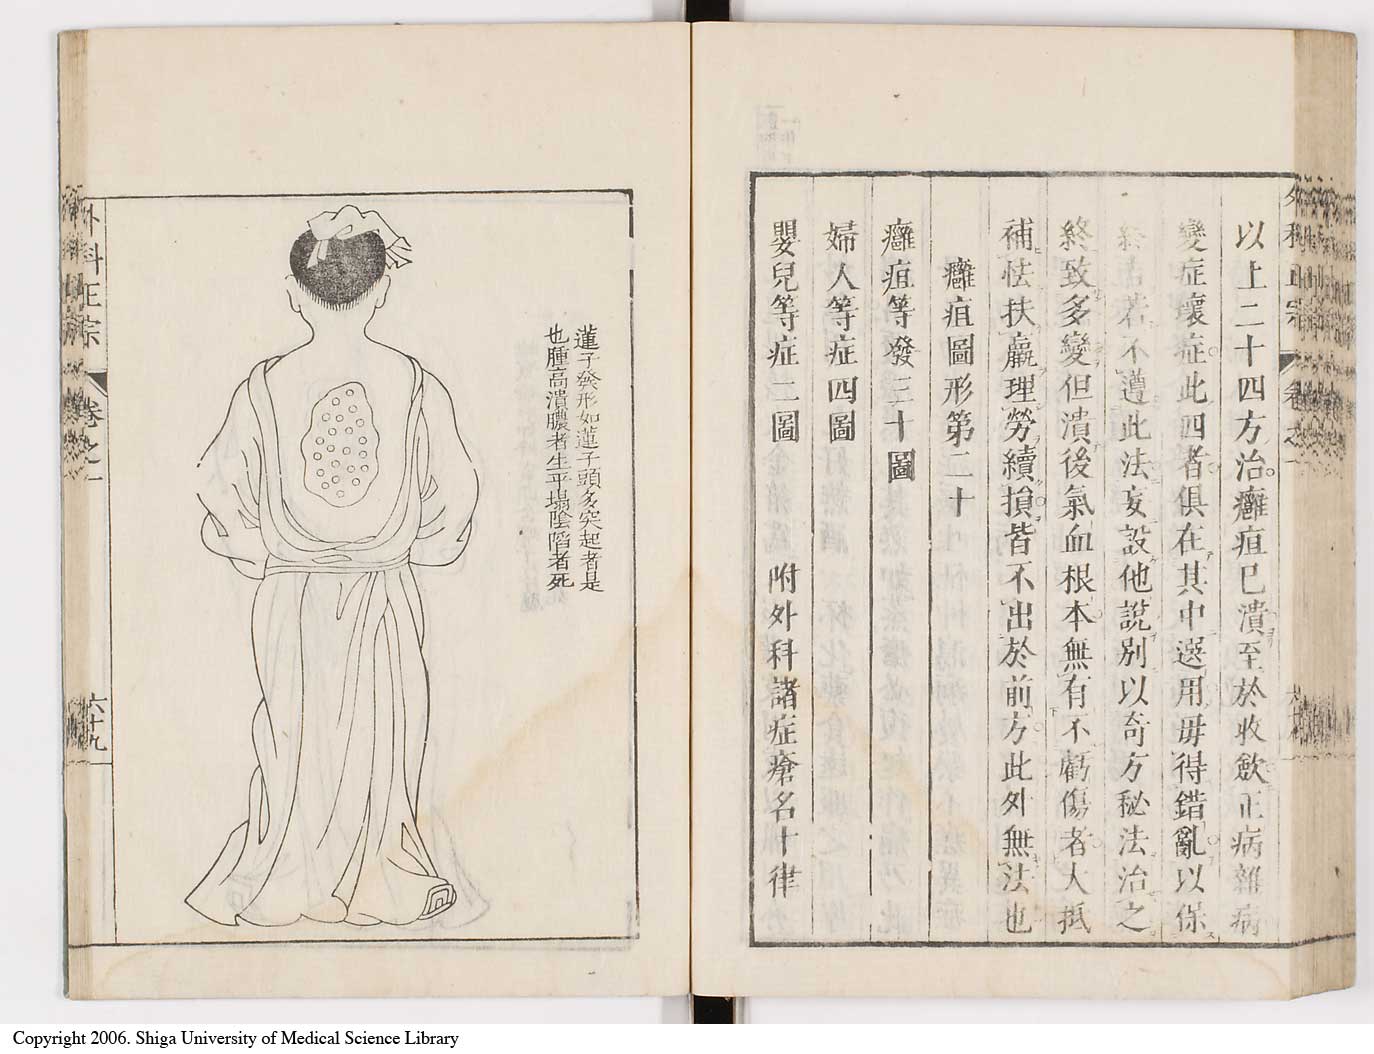 以上二十四方治癰疽已潰至於收歛正病雜病
變症壞症此四者俱在其中選用毋得錯亂以保
終吉若不遵此法妄設他說別以奇方秘法治之
終致多變但潰後氣血根本無有不虧傷者大抵
補怯扶羸理勞續損皆不出於前方此外無法也
癰疽圖形第二十
癰疽等發三十圖
婦人等症四圖
嬰兒等症二圖 附外科諸症瘡名十律
蓮子發形如蓮子頭多突起者是
也腫高潰膿者生平塌陰陷者死
外科正宗 卷之一 六十九
Copyright 2006. Shiga University of Medical Science Library